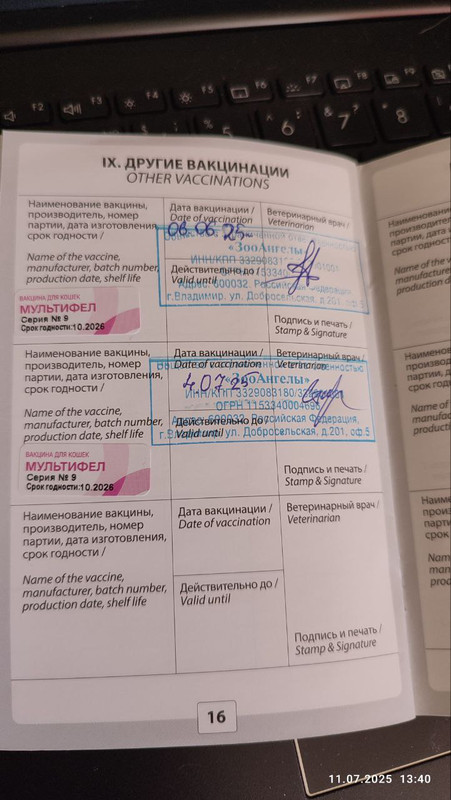 F2
F3
F4
F5
F6
F7
F8
F9
5
6
7
8
IX. ДРУГИЕ ВАКЦИНАЦИИ
OTHER VACCINATIONS
Наименование вакцины,
производитель, номер
партии, дата изготовления,
срок годности /
Name of the vaccine,
manufacturer, batch number,
production date, shelf life
Дата вакцинации /
Date of vaccination
06.25
Ветеринарный врач /
Veterinarian
«ЗооАнгелы»
ИНН/КПП
Действительно до /
Valid until
Адрес: 600032, Российская Федерация,
г.Владимир, ул. Добросельская, д.201, оф.5
ВАКЦИНА ДЛЯ КОШЕК
МУЛЬТИФЕЛ
Серия № 9
Срок годности:10.2026
Подпись и печать /
Stamp & Signature
Наименование вакцины,
производитель, номер
партии, дата изготовления,
срок годности /
Name of the vaccine,
manufacturer, batch number,
production date, shelf life
Дата вакцинации /
Date of vaccination
4.07.25
Ветеринарный врач /
Veterinarian
«ЗооАнгелы»
ИНН/КПП
ОГРН
Действительно до /
Valid until
Российская Федерация,
ул. Добросельская, д.201, оф.5
ВАКЦИНА ДЛЯ КОШЕК
МУЛЬТИФЕЛ
Серия № 9
Срок годности:10.2026
Подпись и печать /
Stamp & Signature
Наименование вакцины,
производитель, номер
партии, дата изготовления,
срок годности /
Name of the vaccine,
manufacturer, batch number,
production date, shelf life
Дата вакцинации /
Date of vaccination
Ветеринарный врач /
Veterinarian
Действительно до /
Valid until
Подпись и печать /
Stamp & Signature
16
11.07.2025 13:40